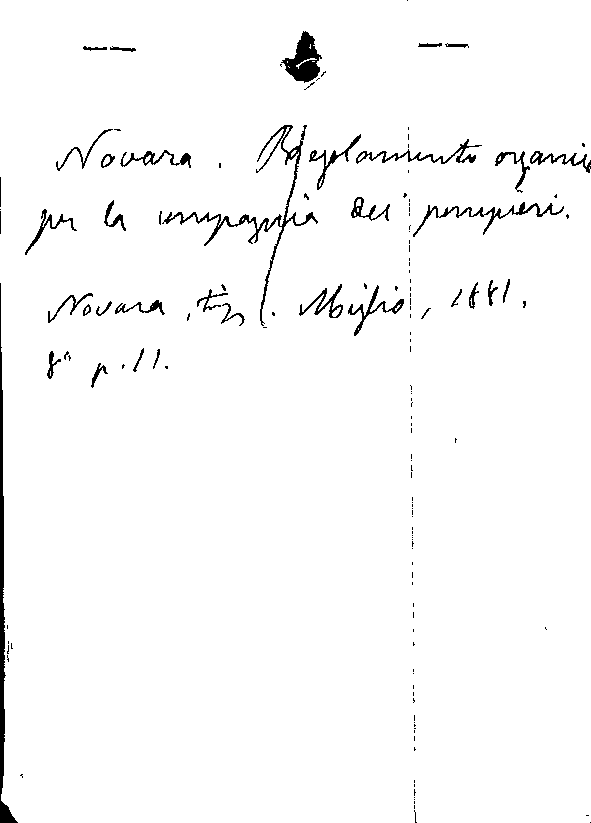 Novara. Regolamento organic
per la compagnia dei pompieri.
Novara, tip. Miglio, 1881.
8° p. 11.